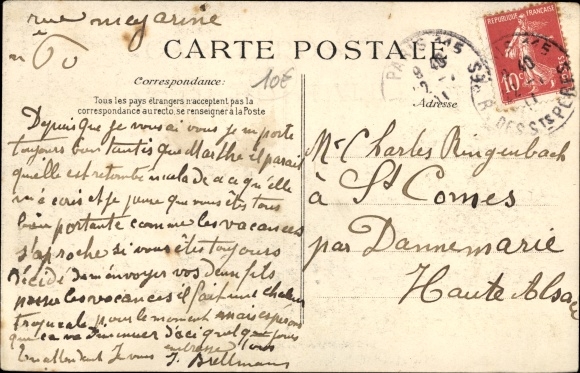 rue mezarine
n° 60
CARTE POSTALE
Correspondance:
10€
Tous les pays étrangers n'acceptent pas la
correspondance au recto, se renseigner à la Poste
Adresse
RÉPUBLIQUE FRANÇAISE
10
PARIS
R. DES STS PÈRES
Depuis que je vous ai vous je me porte
toujours bien tantis que Marthe il parait
qu'elle est retombé malade a ce qu'elle
m'écris et je pense que vous êtes tous
bien portante comme les vacances
s'aproche si vous êtes toujours
décidé de m'envoyer vos deux fils
passer les vacances il fait une chaleur
tropicale pour le moment mais esperons
que ca va diminuer d'ici quelque jours
En attendant Je vous embrasse tous
J. Brellmann
Mr Charles Ringenbach
à St Comes
par Dannemarie
Haute Alsace